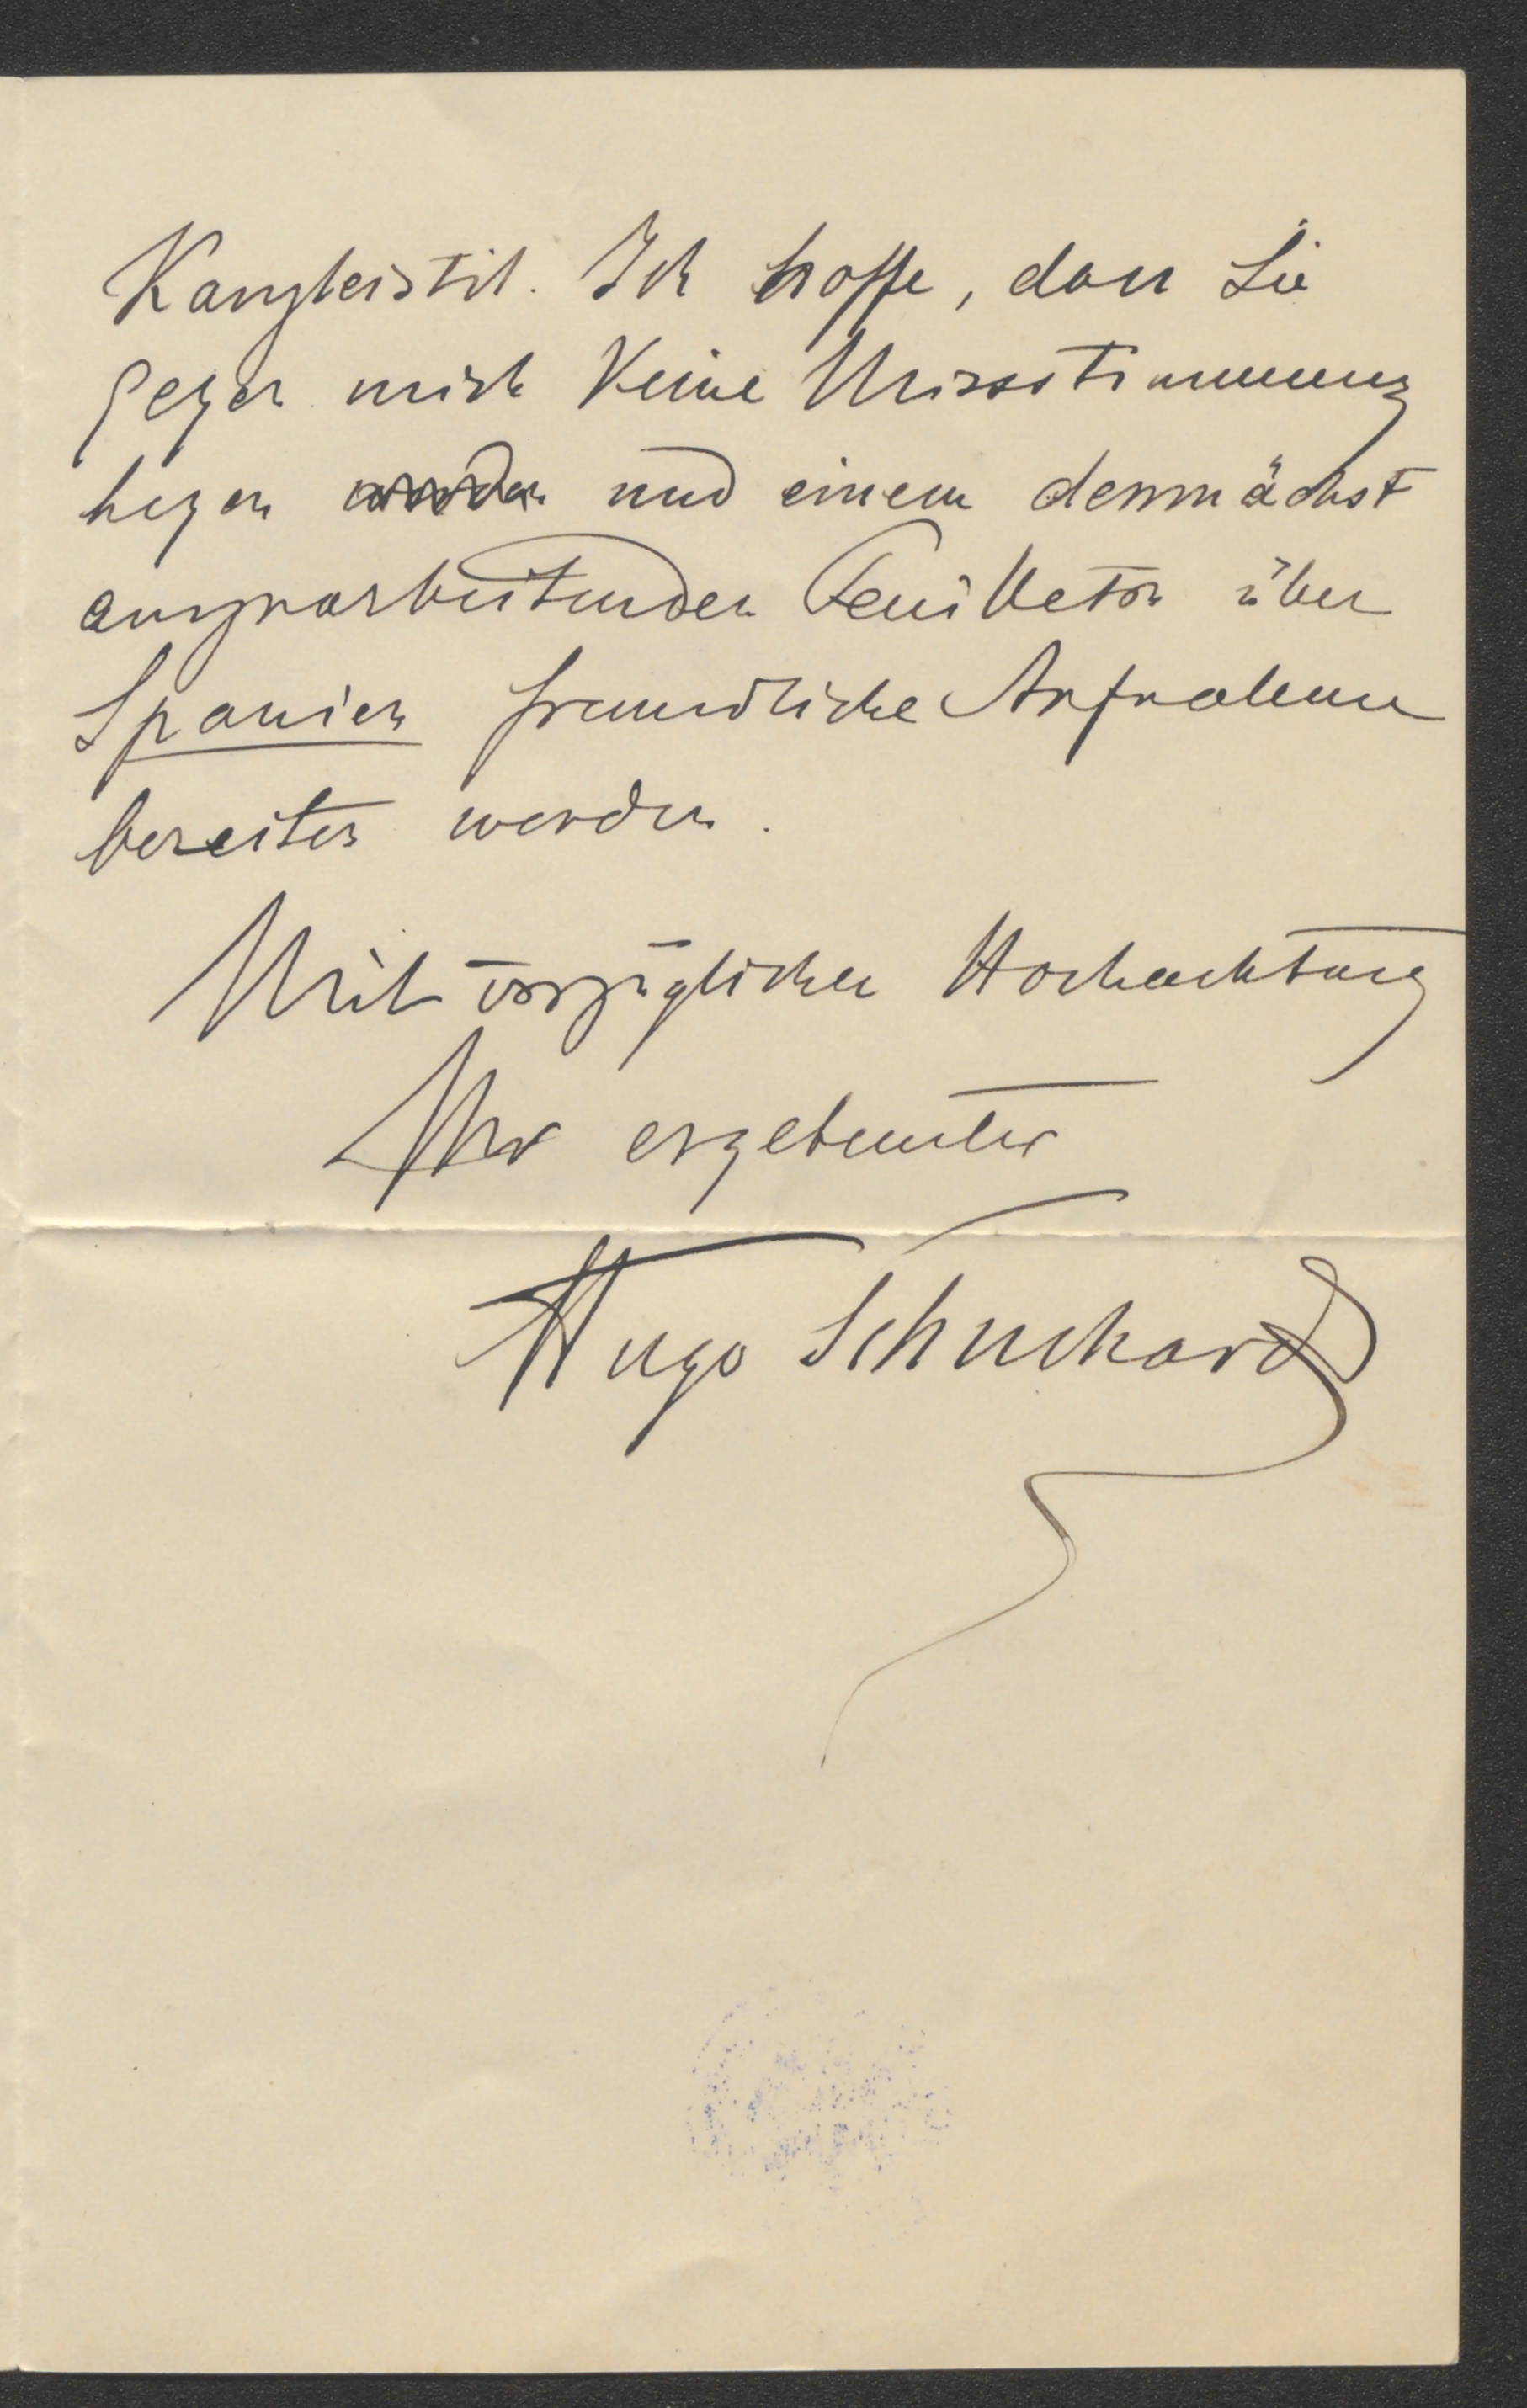 Kanzleistil. Ich hoffe, dass Sie
gegen mich keine Missstimmung
hegen werden und einem demnächst
auszuarbeitenden Feuilleton über
Spanien freundliche Aufnahme
bereiten werden.
Mit vorzüglicher Hochachtung
Ihr ergebenster
Hugo Schuchardt